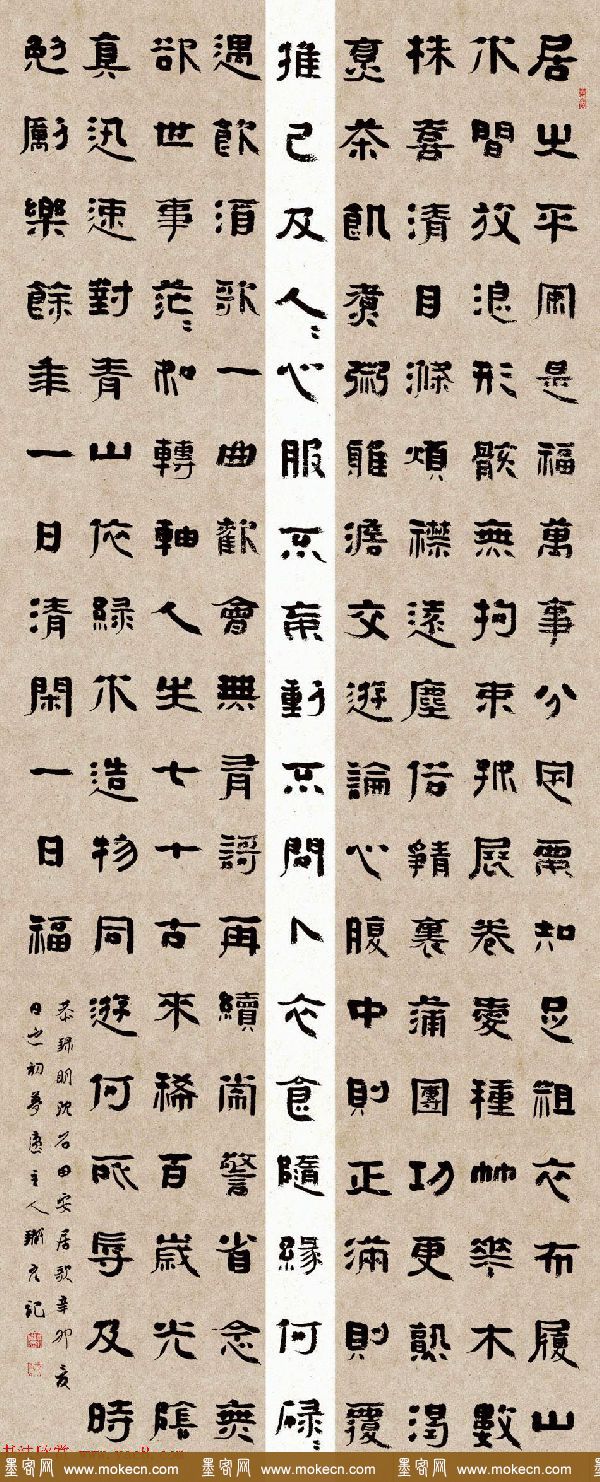 居之平安是福萬事分定需知足粗衣布履山
水間放浪形骸無拘束弛展卷愛種竹花木數
株喜清目滌煩襟遠塵俗靜裏蒲團功更熟渴
烹茶飢煮粥雖澹交遊論心腹中則正滿則覆
推己及人〻心服不妄動不問卜衣食隨緣何碌〻
遇飲酒歌一曲歡會無尋訶再續當警省念無
欲世事茫〻如轉軸人生七十古來稀百歲光陰
真迅速對青山依綠水造物同遊何所辱及時
勉勵樂餘年一日清閑一日福
恭錄明沈石田安居歌辛卯夏
日也初夢廬主人記
墨客网 www.mokecn.com 墨客网 www.mokecn.com 墨客网 www.mokecn.com